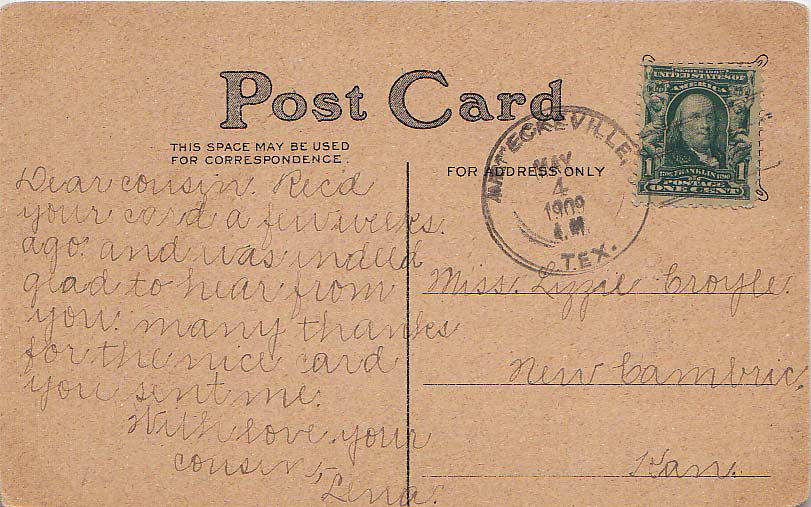 Post Card
THIS SPACE MAY BE USED
FOR CORRESPONDENCE.
FOR ADDRESS ONLY
Dear cousin. Rec'd
your card a few weeks
ago. and was indeed
glad to hear from
you. many thanks
for the nice card
you sent me.
With love your
cousin,
Lena.
ECKEVILLE,
MAY
4
1909
A.M.
TEX.
SERIES 1902
UNITED STATES OF
AMERICA
1 FRANKLIN 1
POSTAGE
ONE CENT
Miss. Lizzie Croyle.
New Cambric,
Kan.